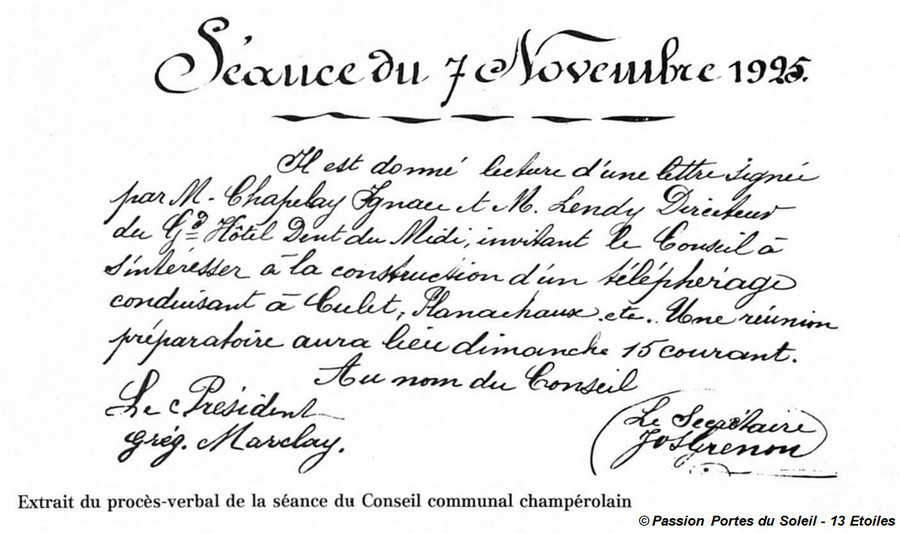 Séance du 7 Novembre 1925.
Il est donné lecture d'une lettre signée
par M. Chapelay Ignace et M. Lendy Directeur
du Gd Hôtel Dent du Midi, invitant le Conseil à
s'intéresser à la construction d'un téléphérage
conduisant à Culet, Planachaux. etc. Une réunion
préparatoire aura lieu dimanche 15 courant.
Au nom du Conseil
Le Président
Grég. Marclay.
Le Secrétaire
Jos Grenon
Extrait du procès-verbal de la séance du Conseil communal champérolain
© Passion Portes du Soleil - 13 Etoiles